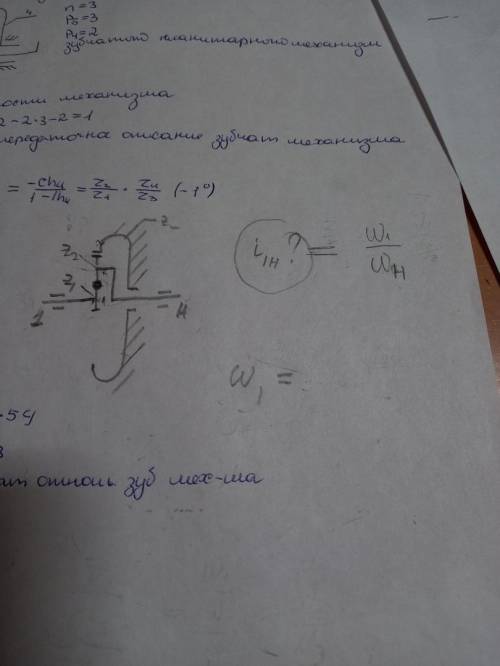 4
n = 3
P5 = 3
P4 = 2
зубчатого планитарного механизм
ости механизма
2 - 2·3 - 2 = 1
передаточна описание зубчат механизма
= Z2/Z1 · Z4/Z3 (-1⁰)
Z2
Z1
1
H
i1H ? = ω1/ωH
ω1 =
54
зуб мех-ма